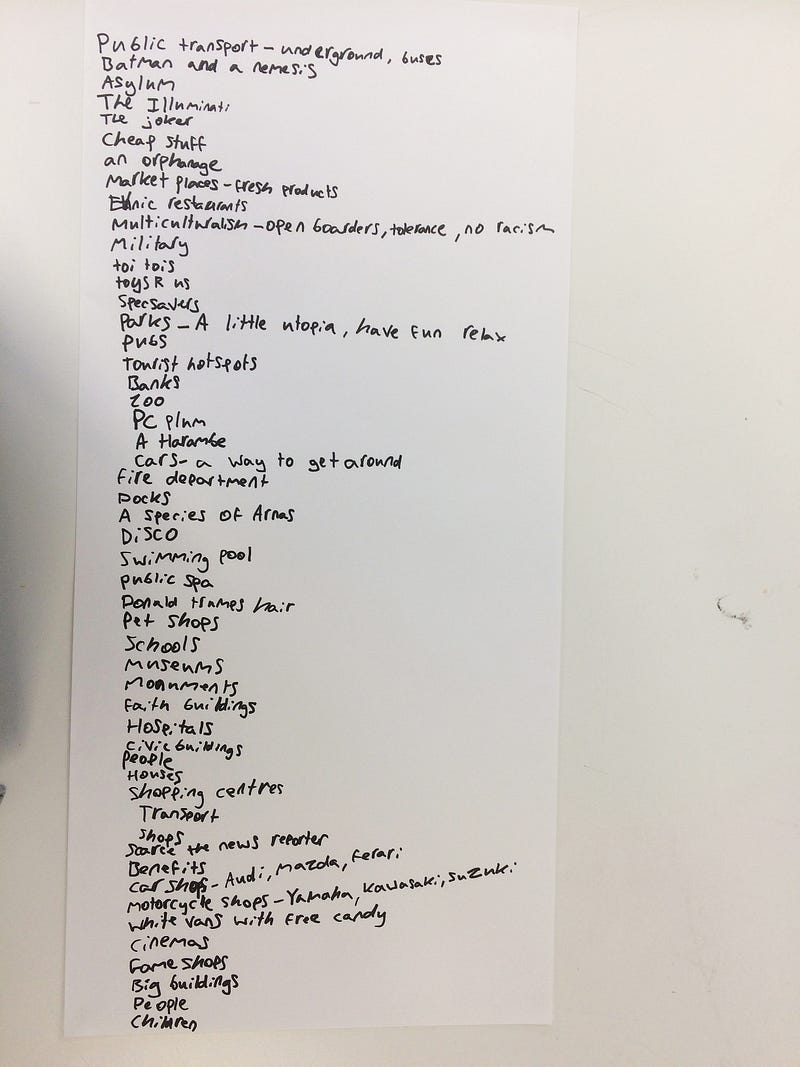 Public transport – underground, buses
Batman and a nemesis
Asylum
The Illuminati
The joker
Cheap stuff
an orphanage
Market places – fresh products
Ethnic restaurants
Multiculturalism – open boarders, tolerance, no racism
Military
toi tois
toys R us
Specsavers
Parks – A little utopia, have fun relax
Pubs
Tourist hotspots
Banks
Zoo
PC plum
A Harambe
Cars – a way to get around
Fire department
Docks
A species of
Disco
Swimming pool
public spa
Donald trumps hair
Pet shops
Schools
Museums
Monuments
Faith buildings
Hospitals
Civic buildings
People
Houses
Shopping centres
Transport
Shops
the news reporter
Benefits
Car shops – Audi, Mazda, Ferari
Motorcycle shops – Yamaha, Kawasaki, Suzuki
White vans with free candy
Cinemas
shops
Big buildings
People
Children